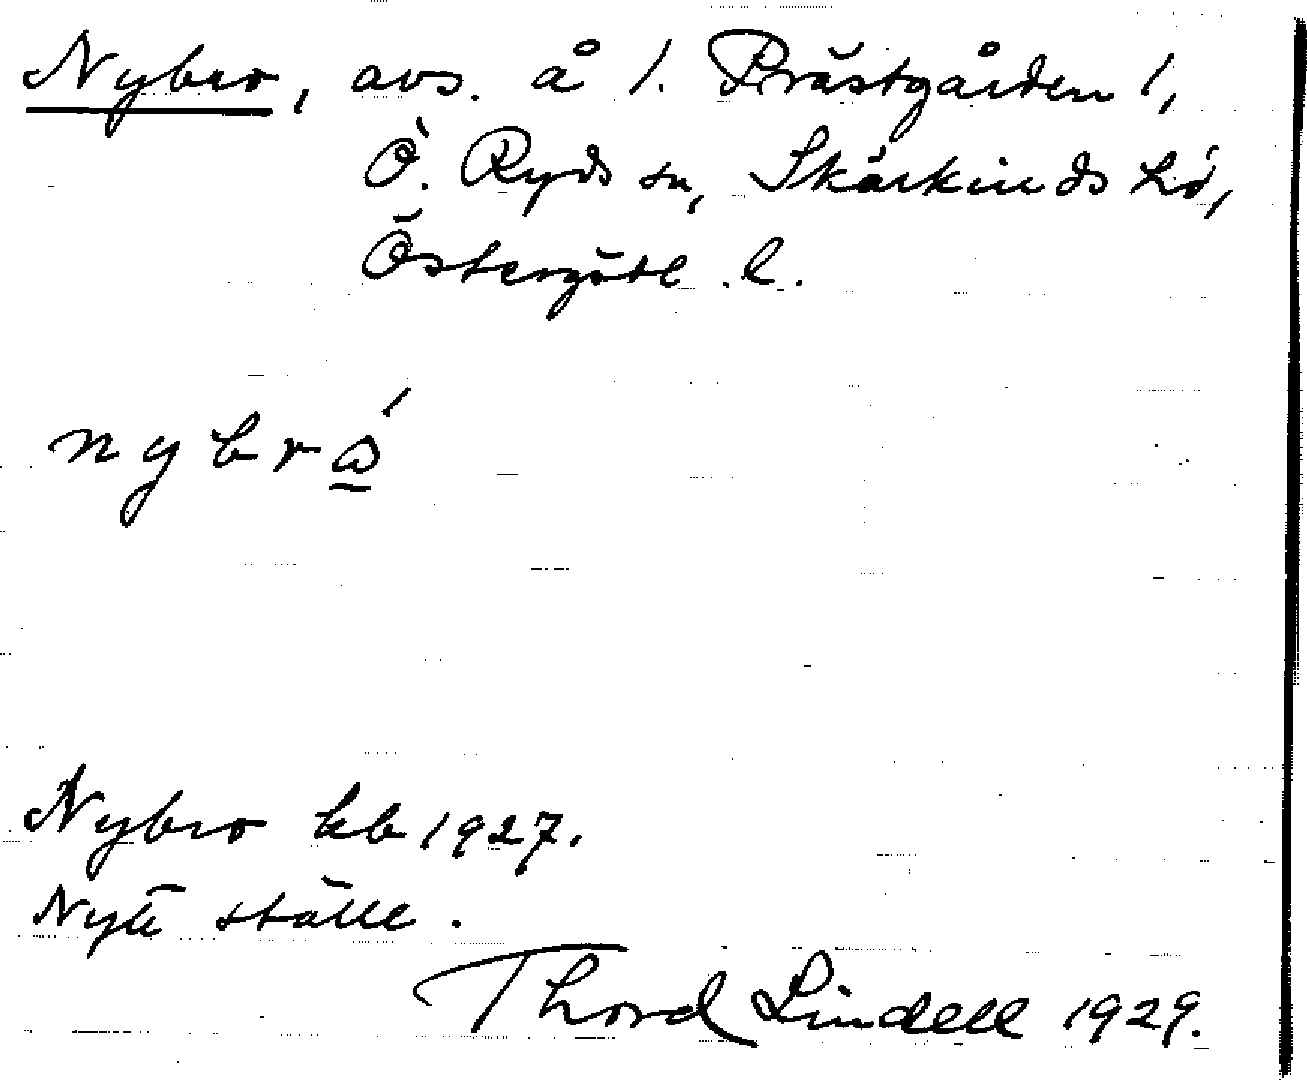 Nybro, avs. å 1. Prästgården 1,
Ö. Ryds sn, Skärkinds hd,
Östergötl. l.
nybrώ̲
Nybro kb 1927.
Nytt ställe.
Thord Lindell 1929.